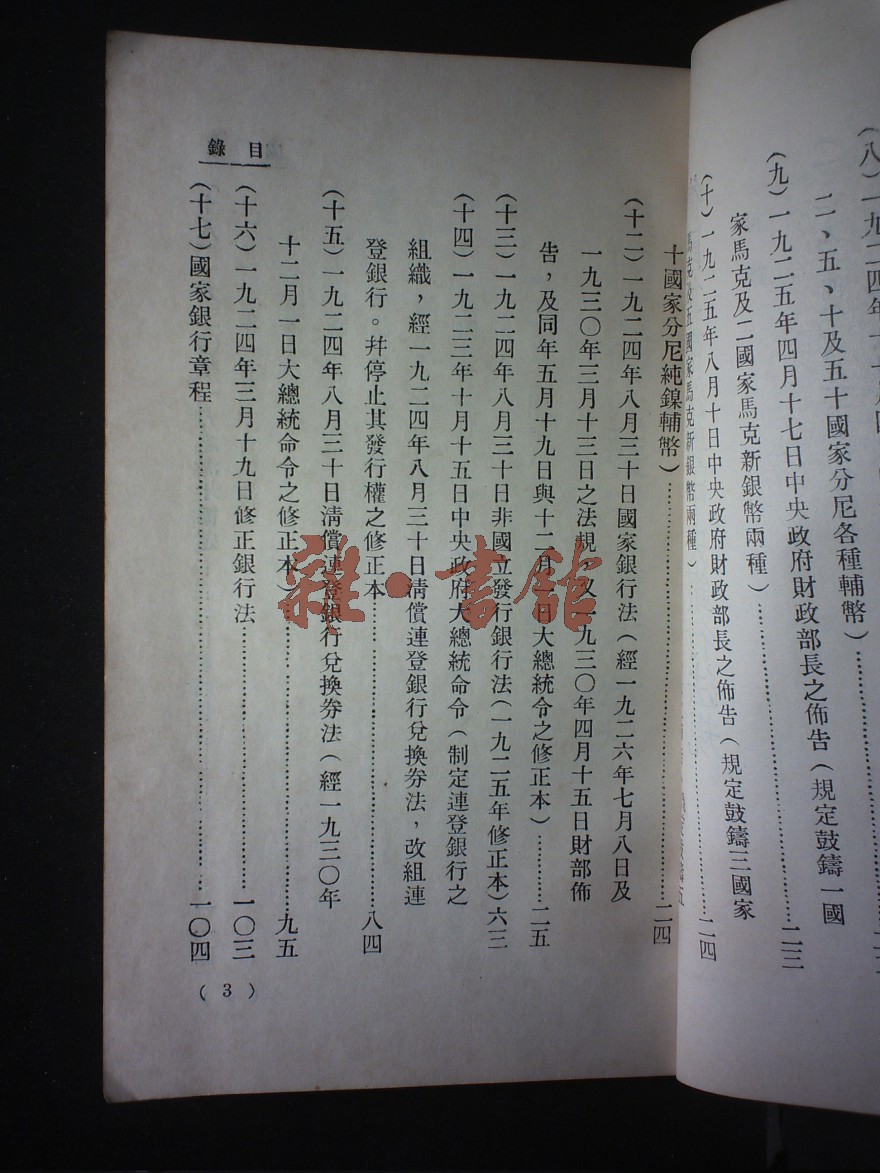 (八)一九二四年十一月
二、五、十及五十國家分尼各種輔幣)
(九)一九二五年四月十七日中央政府財政部長之佈告(規定鼓鑄一國
家馬克及二國家馬克新銀幣兩種)……二三
(十)一九二五年八月十日中央政府財政部長之佈告(規定鼓鑄三國家
馬克及五國家馬克新銀幣兩種)……二四
十國家分尼純鎳輔幣)……二四
(十二)一九二四年八月三十日國家銀行法(經一九二六年七月八日及
一九三〇年三月十三日之法規,又一九三〇年四月十五日財部佈
告,及同年五月十九日與十二月一日大總統令之修正本)……二五
(十三)一九二四年八月三十日非國立發行銀行法(一九二五年修正本)六三
(十四)一九二三年十月十五日中央政府大總統命令(制定連登銀行之
組織,經一九二四年八月三十日清償連登銀行兌換券法,改組連
登銀行。幷停止其發行權之修正本……八四
(十五)一九二四年八月三十日清償連登銀行兌換券法(經一九三〇年
十二月一日大總統命令之修正本)……九五
(十六)一九二四年三月十九日修正銀行法……一〇三
(十七)國家銀行章程……一〇四
目錄
(3)
雜·書館